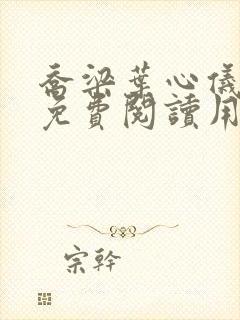 喬梁葉心儀
免費閱讀用
宗幹